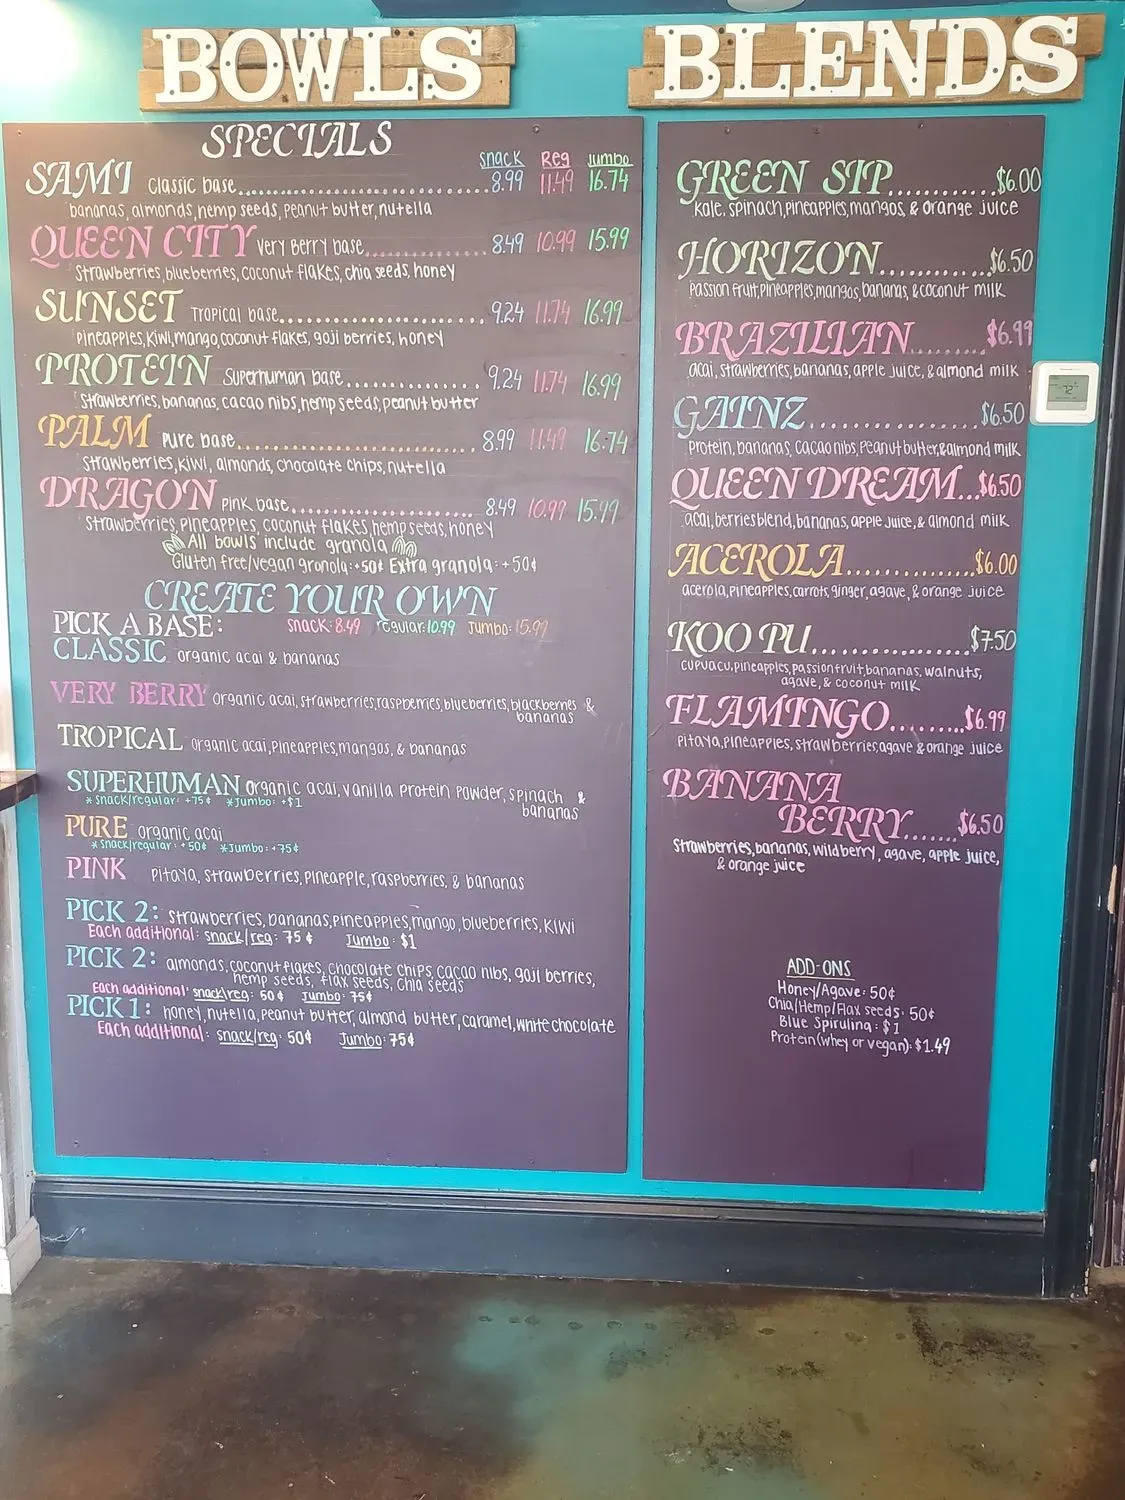 BOWLS
SPECIALS
snack Reg Jumbo
SAMI Classic base 8.99 11.49 16.74
bananas, almonds, hemp seeds, peanut butter, nutella
QUEEN CITY Very Berry base 8.49 10.99 15.99
Strawberries, blueberries, coconut flakes, chia seeds, honey
SUNSET Tropical base 9.24 11.74 16.99
Pineapples, Kiwi, mango, coconut flakes, goji berries, honey
PROTEIN Superhuman base 9.24 11.74 16.99
Strawberries, bananas, cacao nibs, hemp seeds, peanut butter
PALM Pure base 8.99 11.49 16.74
Strawberries, kiwi, almonds, chocolate chips, nutella
DRAGON Pink base 8.49 10.99 15.99
Strawberries, pineapples, coconut flakes, hemp seeds, honey
All bowls include granola
Gluten free/vegan granola: +50¢ Extra granola: +50¢
CREATE YOUR OWN
PICK A BASE: snack: 8.49 regular: 10.99 Jumbo: 15.99
CLASSIC organic acai & bananas
VERY BERRY organic acai, strawberries, raspberries, blueberries, blackberries &
bananas
TROPICAL organic acai, pineapples, mangos, & bananas
SUPERHUMAN organic acai, vanilla protein powder, spinach &
* snack/regular: +75¢ * Jumbo: +$1 bananas
PURE organic acai
* snack/regular: +50¢ * Jumbo: +75¢
PINK Pitaya, strawberries, pineapple, raspberries, & bananas
PICK 2: strawberries, bananas, pineapples, mango, blueberries, kiwi
Each additional: snack/reg: 75¢ Jumbo: $1
PICK 2: almonds, coconut flakes, chocolate chips, cacao nibs, goji berries,
hemp seeds, flax seeds, chia seeds
Each additional: snack/reg: 50¢ Jumbo: 75¢
PICK 1: honey, nutella, peanut butter, almond butter, caramel, white chocolate
Each additional: snack/reg: 50¢ Jumbo: 75¢
BLENDS
GREEN SIP $6.00
kale, spinach, pineapples, mangos, & orange juice
HORIZON $6.50
Passion fruit, pineapples, mangos, bananas, & coconut milk
BRAZILIAN $6.99
acai, strawberries, bananas, apple juice, & almond milk
GAINZ $6.50
Protein, bananas, cacao nibs, peanut butter, & almond milk
QUEEN DREAM $6.50
acai, berries blend, bananas, apple juice, & almond milk
ACEROLA $6.00
acerola, pineapples, carrots, ginger, agave, & orange juice
KOO PU $7.50
cupuacu, pineapples, passion fruit, bananas, walnuts,
agave, & coconut milk
FLAMINGO $6.99
Pitaya, pineapples, strawberries, agave & orange juice
BANANA
BERRY $6.50
Strawberries, bananas, wildberry, agave, apple juice,
& orange juice
ADD-ONS
Honey/Agave: 50¢
Chia/Hemp/Flax seeds: 50¢
Blue Spirulina: $1
Protein (whey or vegan): $1.49
72